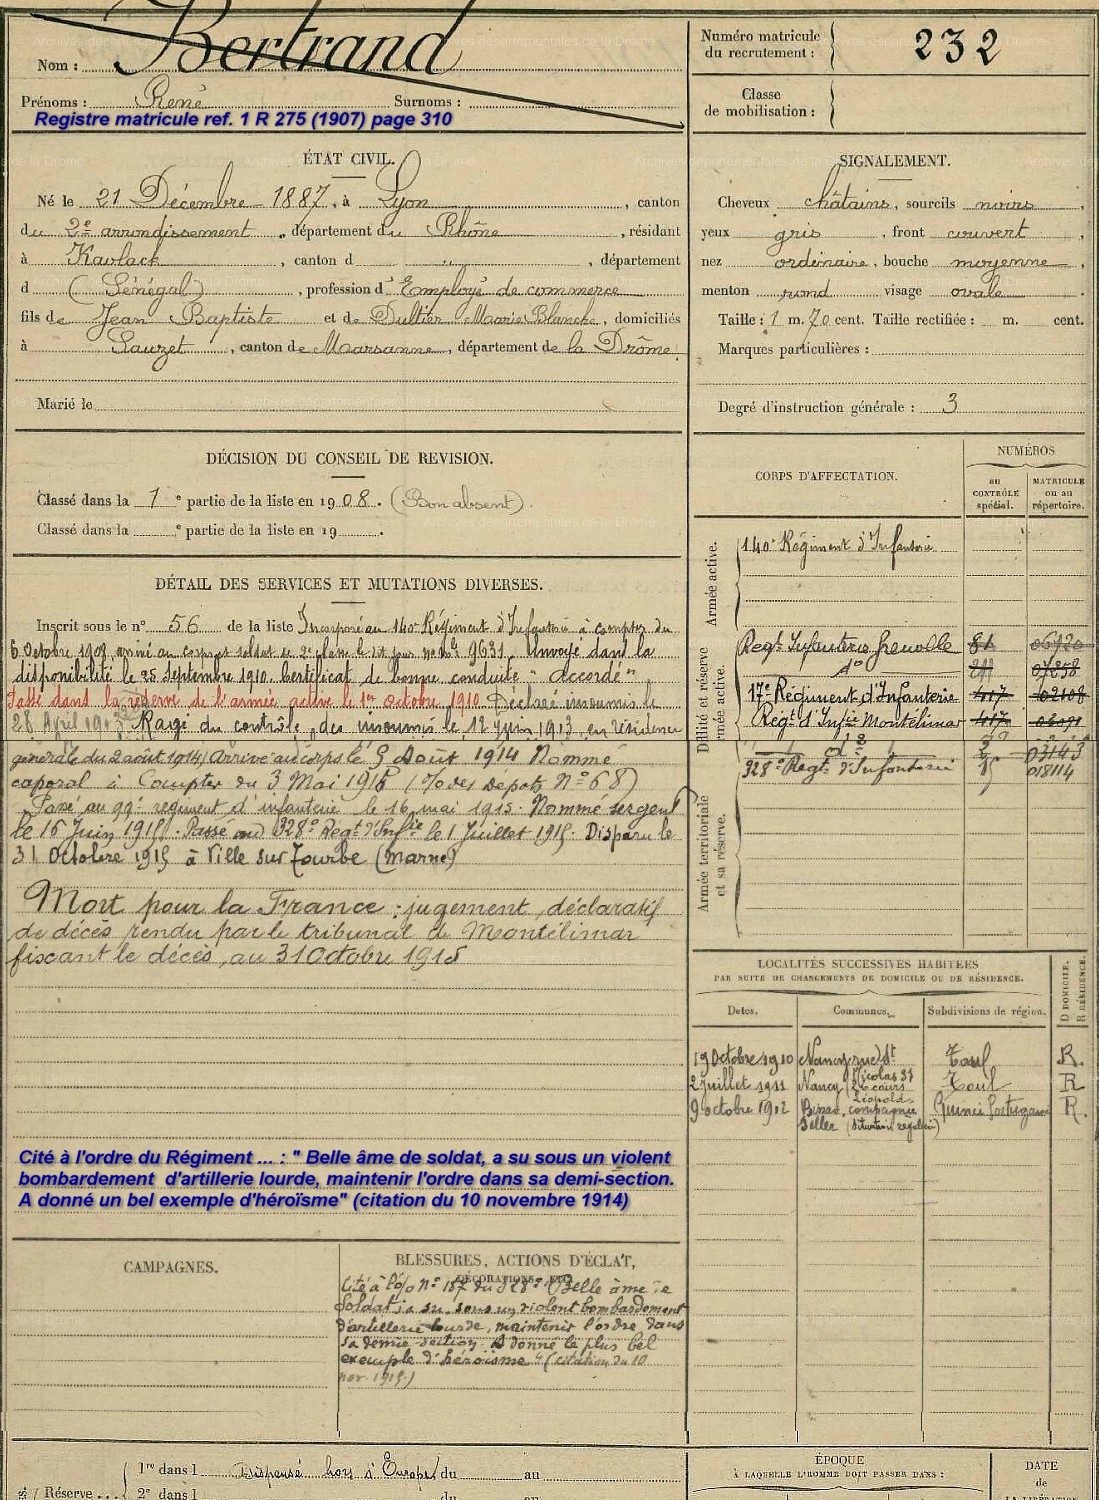 Nom : Bertrand
Prénoms : René Surnoms :
Registre matricule ref. 1 R 275 (1907) page 310
Numéro matricule du recrutement : 232
Classe de mobilisation :
ÉTAT CIVIL.
Né le 21 Décembre 1887, à Lyon, canton
du 2e arrondissement, département du Rhône, résidant
à Kaolack, canton d , département
d (Sénégal), profession d'Employé de commerce
fils de Jean Baptiste et de Marie Blanche, domiciliés
à Sauzet, canton de Marsanne, département de la Drôme.
Marié le
SIGNALEMENT.
Cheveux châtains, sourcils noirs,
yeux gris, front couvert,
nez ordinaire, bouche moyenne,
menton rond visage ovale.
Taille : 1 m. 70 cent. Taille rectifiée : m. cent.
Marques particulières :
Degré d'instruction générale : 3
DÉCISION DU CONSEIL DE REVISION.
Classé dans la 1e partie de la liste en 1908. (Bon absent).
Classé dans la e partie de la liste en 19 .
DÉTAIL DES SERVICES ET MUTATIONS DIVERSES.
Inscrit sous le n° 56 de la liste Incorporé au 140e Régiment d'Infanterie à compter du
6 Octobre 1908, arrivé au corps et soldat de 2e classe le dit jour 9631. Envoyé dans la
disponibilité le 25 Septembre 1910. Certificat de bonne conduite "Accordé"
Passé dans la réserve de l'armée active le 1er Octobre 1910. Déclaré insoumis le
28 Avril Rayé du contrôle des insoumis le 12 juin 1913, en résidence
générale du 2 août 1914) Arrivé au corps le 9 Août 1914 Nommé
caporal à Compter du 3 Mai 1915 (des dépots N° 68)
Passé au 99e régiment d'infanterie le 16 mai 1915. Nommé sergent
le 16 Juin 1915. Passé au 328e Regt d'Infie le 1 Juillet 1915. Disparu le
31 Octobre 1915 à Ville sur Tourbe (Marne)
Mort pour la France : jugement déclaratif
de décès rendu par le tribunal de Montélimar
fixant le décès, au 31 Octobre 1915
CORPS D'AFFECTATION.
NUMÉROS
au CONTRÔLE spécial.
MATRICULE ou au répertoire.
Armée active.
140e Régiment d'Infanterie
Regt Infanterie Grenoble
17e Régiment d'Infanterie 417 02108
Regt d'Infie Montélimar 417
03143
328e Regt d'Infanterie 018114
Armée territoriale et sa réserve.
LOCALITÉS SUCCESSIVES HABITÉES
PAR SUITE DE CHANGEMENTS DE DOMICILE OU DE RÉSIDENCE.
Dates. Communes. Subdivisions de région. D DOMICILE. R RÉSIDENCE.
19 Octobre 1910 Nancy rue St Nicolas 37 Toul R.
2 juillet 1911 Nancy cours Léopold Toul R
9 octobre 1912 Bissao, compagnie (situation regulière) Guinée Portugaise R.
Cité à l'ordre du Régiment ... : " Belle âme de soldat, a su sous un violent
bombardement d'artillerie lourde, maintenir l'ordre dans sa demi-section.
A donné un bel exemple d'héroïsme" (citation du 10 novembre 1914)
CAMPAGNES.
BLESSURES, ACTIONS D'ÉCLAT,
DÉCORATIONS, ETC.
Cité à l'o/o N° 187 du 328e "Belle âme de
Soldat ; a su sous un violent bombardement
d'artillerie lourde, maintenir l'ordre dans
sa demie section. A donné le plus bel
exemple d'héroïsme" (citation du 10
nov. 1915)
1re dans l Dispensé hors d'Europe du au
Réserve 2e dans l du au
ÉPOQUE
À LAQUELLE L'HOMME DOIT PASSER DANS :
DATE
de
LA LIBÉRATION